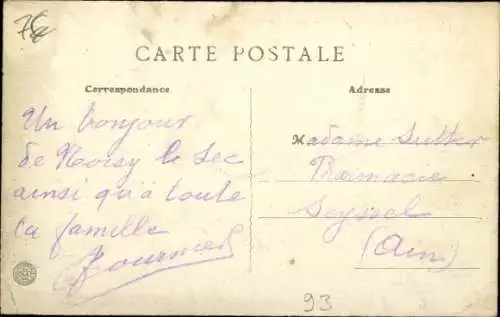 CARTE POSTALE
Correspondance
Adresse
Un bonjour
de Noisy le Sec
ainsi qu'à toute
la famille
Fournier
Madame Sutter
Pharmacie
Seyssel
(Ain)
93